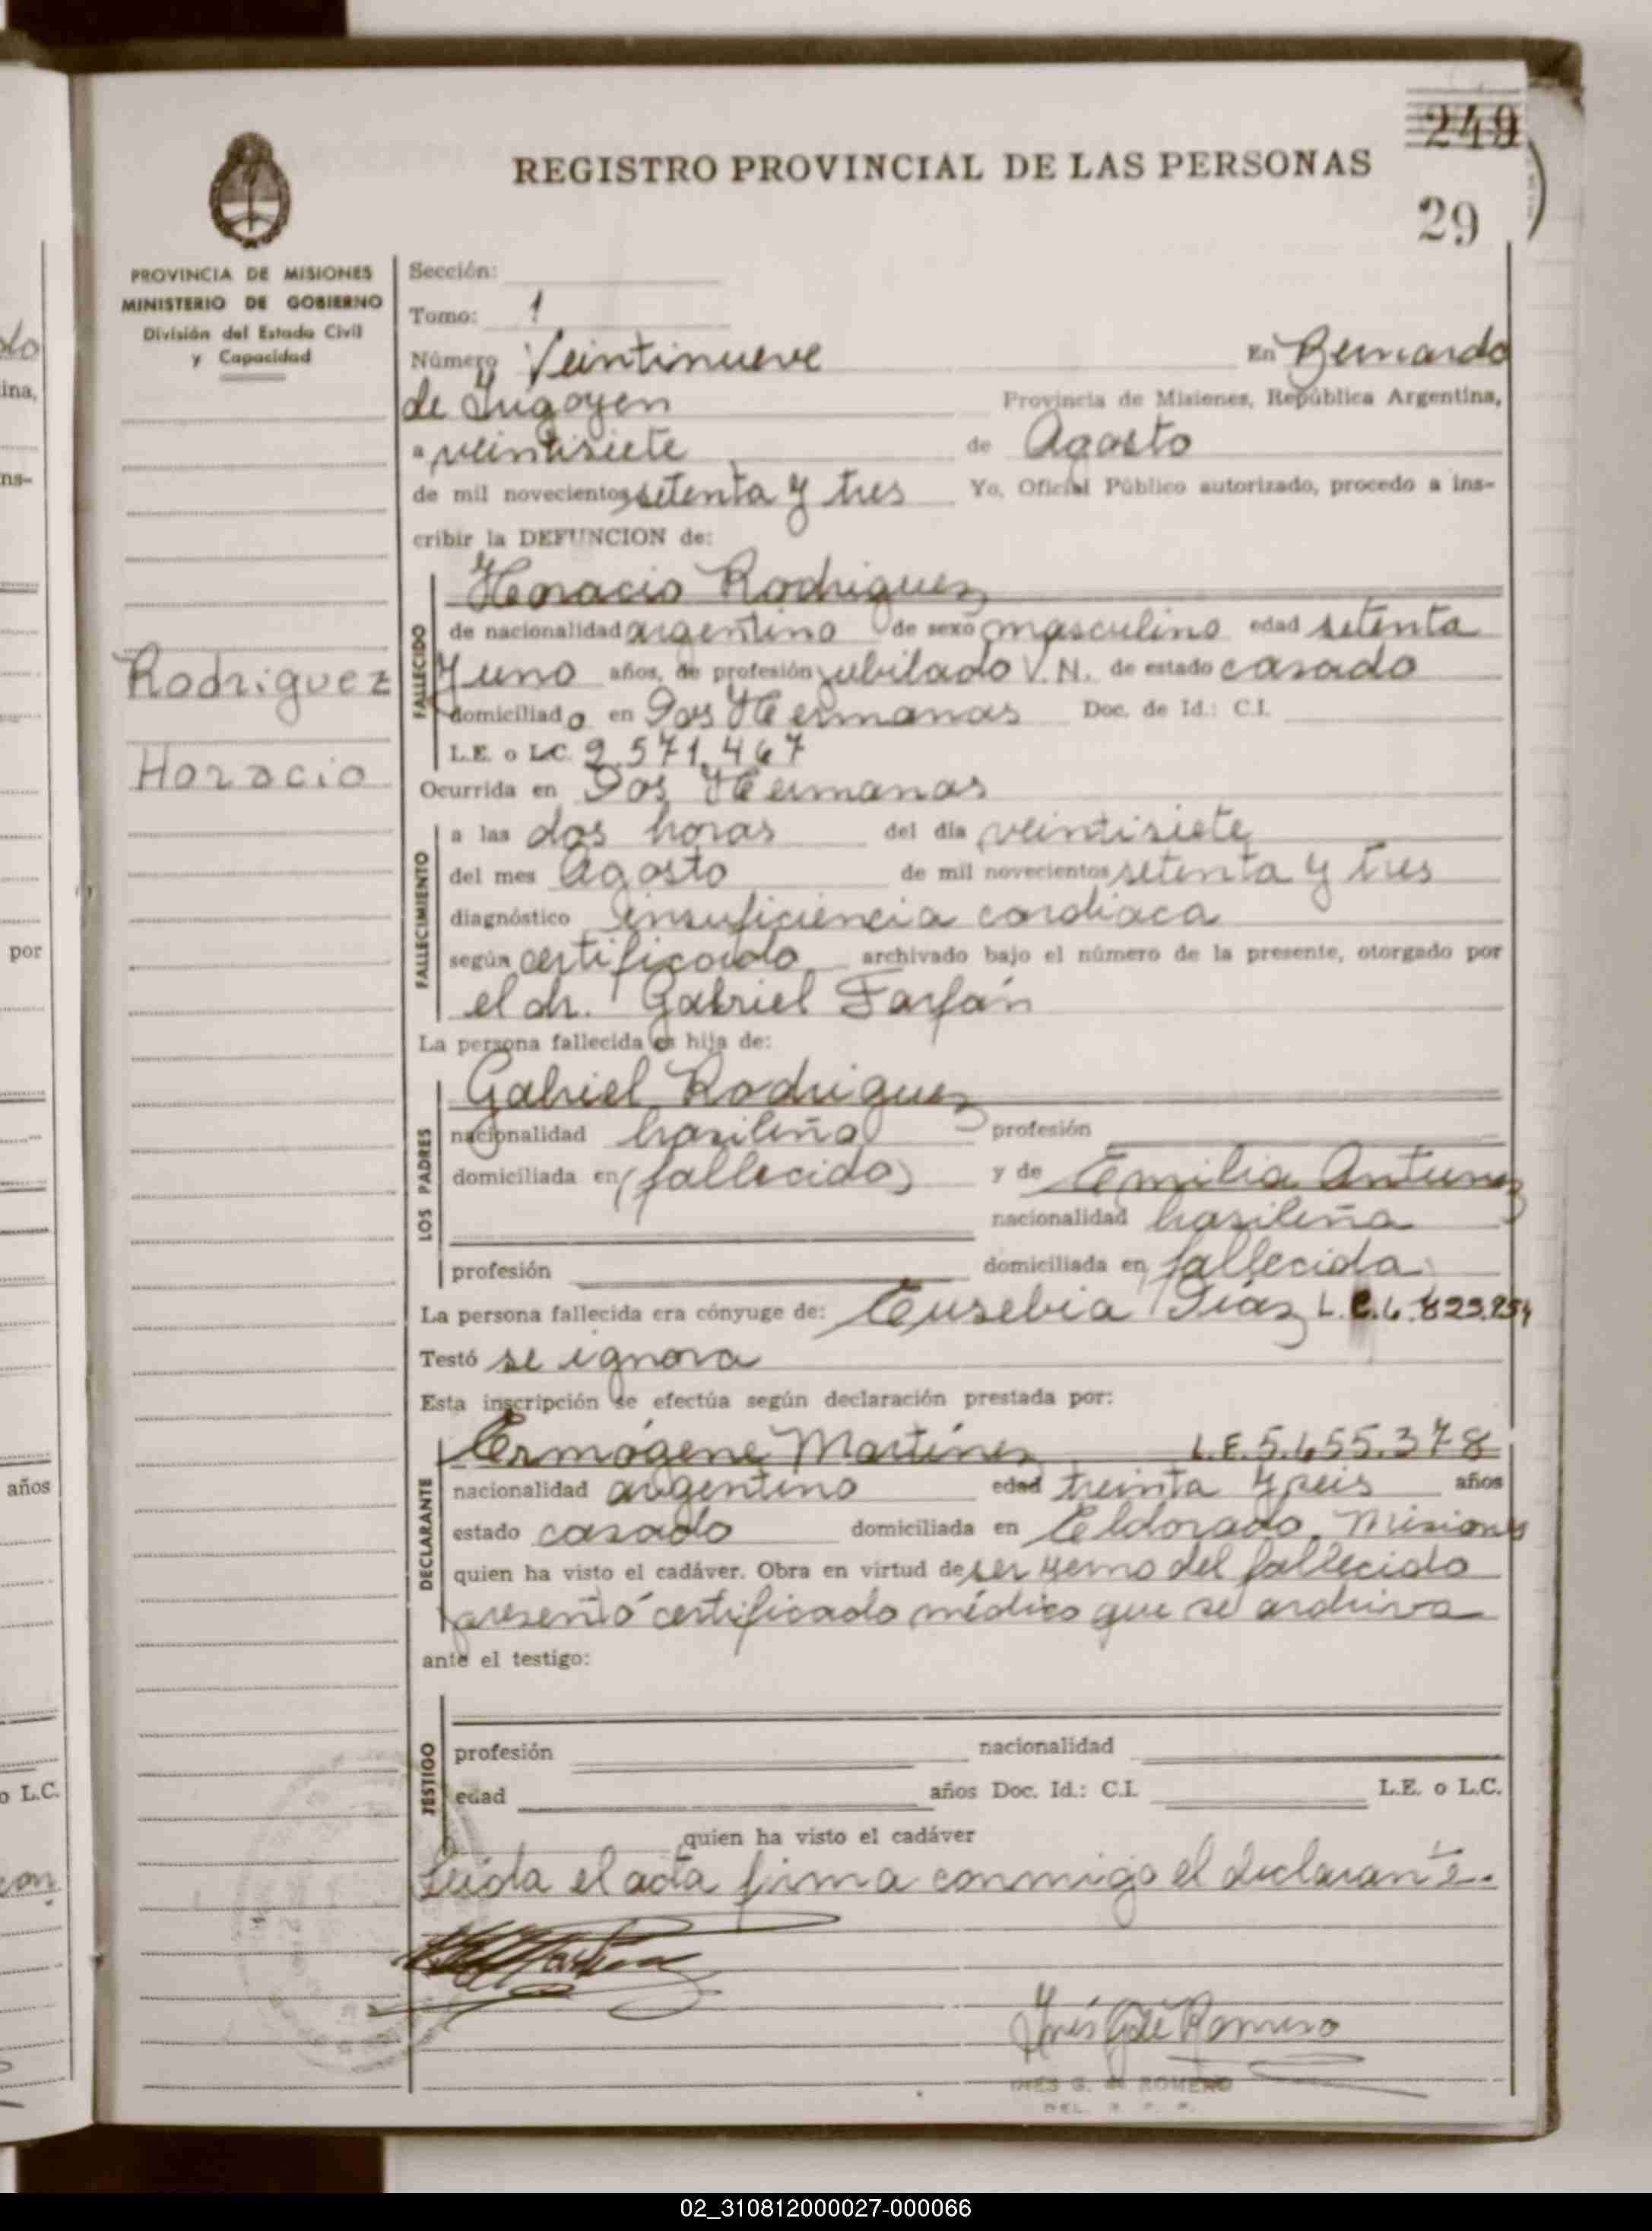 249
REGISTRO PROVINCIAL DE LAS PERSONAS
29
PROVINCIA DE MISIONES
MINISTERIO DE GOBIERNO
División del Estado Civil
y Capacidad
Rodriguez
Horacio
Sección:
Tomo: 1
Número Veintinueve En Bernardo
de Irigoyen Provincia de Misiones, República Argentina,
a veintisiete de Agosto
de mil novecientos setenta y tres Yo, Oficial Público autorizado, procedo a ins-
cribir la DEFUNCION de:
FALLECIDO
Horacio Rodriguez
de nacionalidad argentino de sexo masculino edad setenta
y uno años, de profesión jubilado V.N. de estado casado
domiciliado en Dos Hermanas Doc. de Id.: C.I.
L.E. o L.C. 2.571.467
Ocurrida en Dos Hermanas
FALLECIMIENTO
a las dos horas del día veintisiete
del mes Agosto de mil novecientos setenta y tres
diagnóstico insuficiencia cardiaca
según certificado archivado bajo el número de la presente, otorgado por
el dr. Gabriel Farfán
La persona fallecida es hija de:
LOS PADRES
Gabriel Rodriguez
nacionalidad brasileña profesión
domiciliada en (fallecido) y de Emilia Antunez
nacionalidad brasileña
profesión domiciliada en fallecida
La persona fallecida era cónyuge de: Eusebia Diaz L.C.6.823.254
Testó se ignora
Esta inscripción se efectúa según declaración prestada por:
DECLARANTE
Ermógene Martínez L.E.5.655.378
nacionalidad argentino edad treinta y seis años
estado casado domiciliada en Eldorado, Misiones
quien ha visto el cadáver. Obra en virtud de ser yerno del fallecido
presentó certificado médico que se archiva
ante el testigo:
TESTIGO
profesión nacionalidad
edad años Doc. Id.: C.I. L.E. o L.C.
quien ha visto el cadáver
Leida el acta firma conmigo el declarante.
Inés G. de Romero
INES G. de ROMERO
DEL. R. P. P.
lo
ina,
ns-
por
años
o L.C.
con
02_310812000027-000066